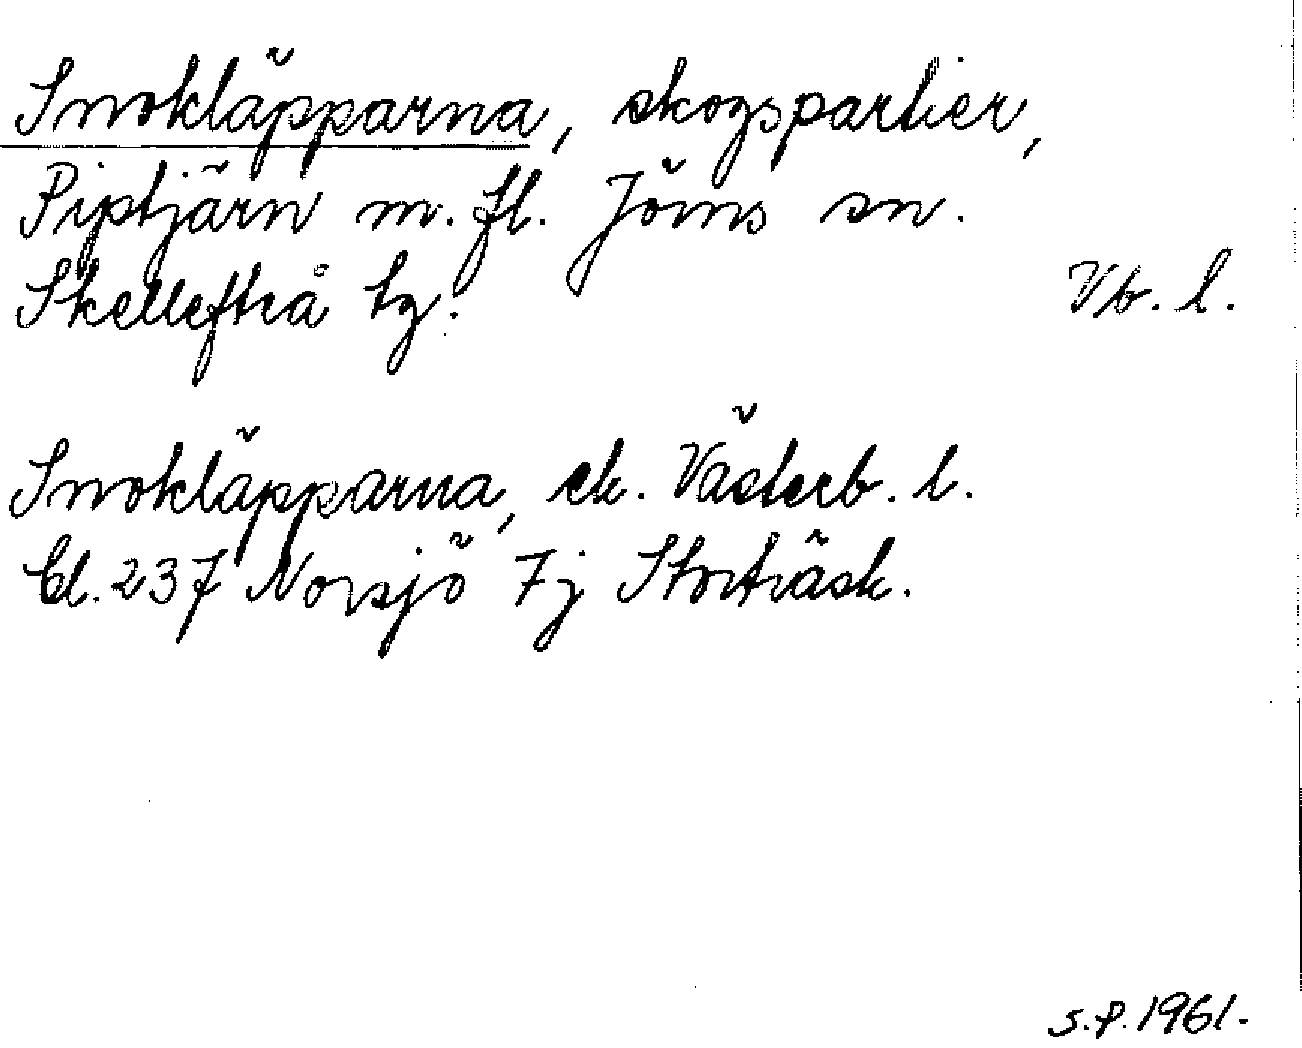 Snokläpparna, skogspartier,
Piptjärn m. fl. Jörns sn.
Skellefteå tg. Vb. l.
Snokläpparna, ek. Västerb. l.
Bl. 237 Norsjö 7j Storträsk.
S.P. 1961.